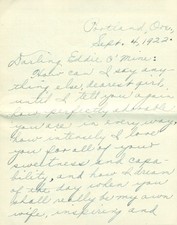 Portland, Ore,
Sept. 4, 1922.
Darling Eddie O' Mine:
How can I say any-
thing else, dearest girl,
until I tell you again
how perfectly adorable
you are in every way,
how intensely I love
you for all of your
sweetness and capa-
bility, and how I dream
of the day when you
shall really be my own
wife, inspiring and